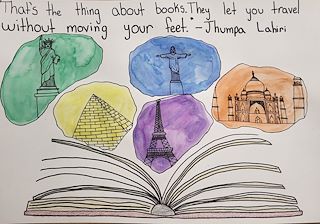 "That's the thing about books. They let you travel
without moving your feet." -Jhumpa Lahiri